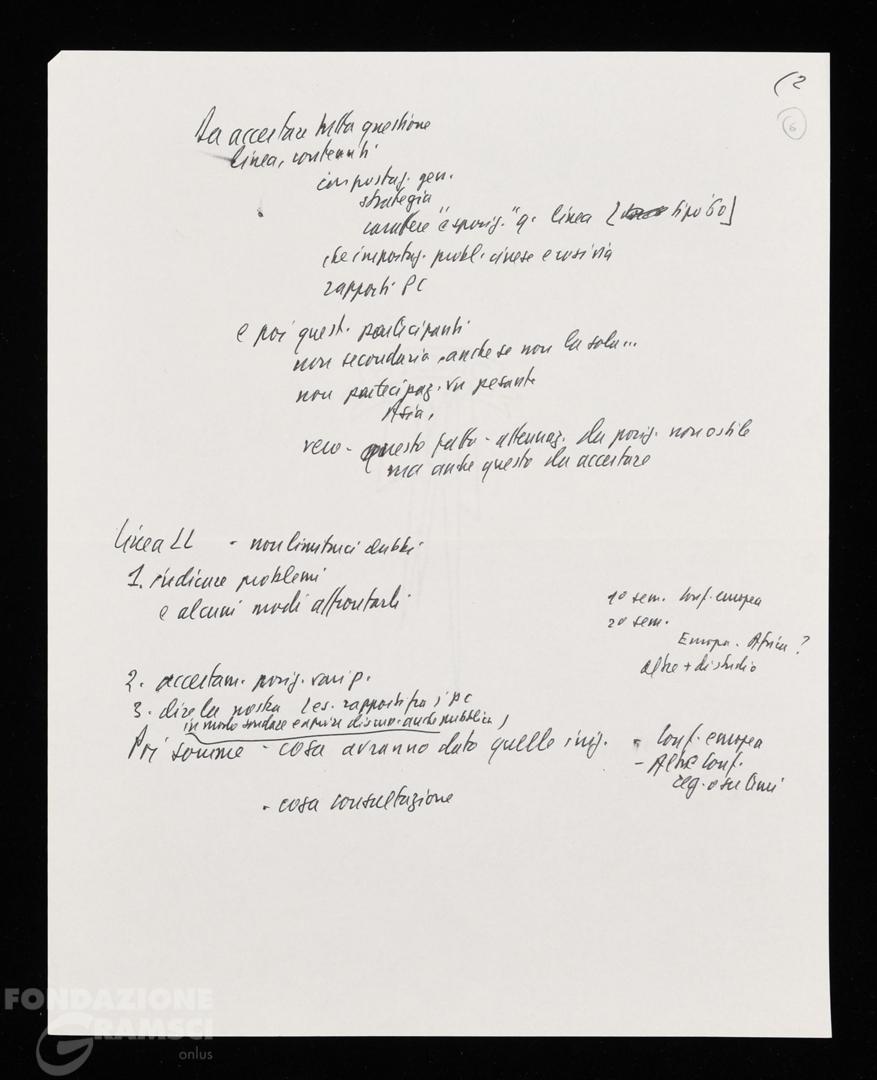 (2
6
Da accertare tutta questione
linea, contenuti
impostaz. gen.
strategia
carattere "esposiz." q. linea [ tipo 60]
che impostaz. probl. cinese e
rapporti PC
e poi quest. partecipanti
non secondaria, anche se non la sola...
non partecipaz. pesante
Asia,
vero - questo fatto - attenuaz. da posiz. non ostile
ma anche questo da accertare
linea LL - non limitarci dubbi
1. indicare problemi
e alcuni modi affrontarli
1º sem. Conf. europea
2º sem.
Europa. Africa ?
altre + di studio
2. accertam. posiz. vari p.
3. dire la nostra (es. rapporti fra i PC
in modo sondare e aprire discus. anche pubblica)
Poi somme - cosa avranno dato quelle iniz.
- Conf. europea
- Altre Conf.
reg. o su temi
- cosa consultazione
FONDAZIONE
GRAMSCI
onlus